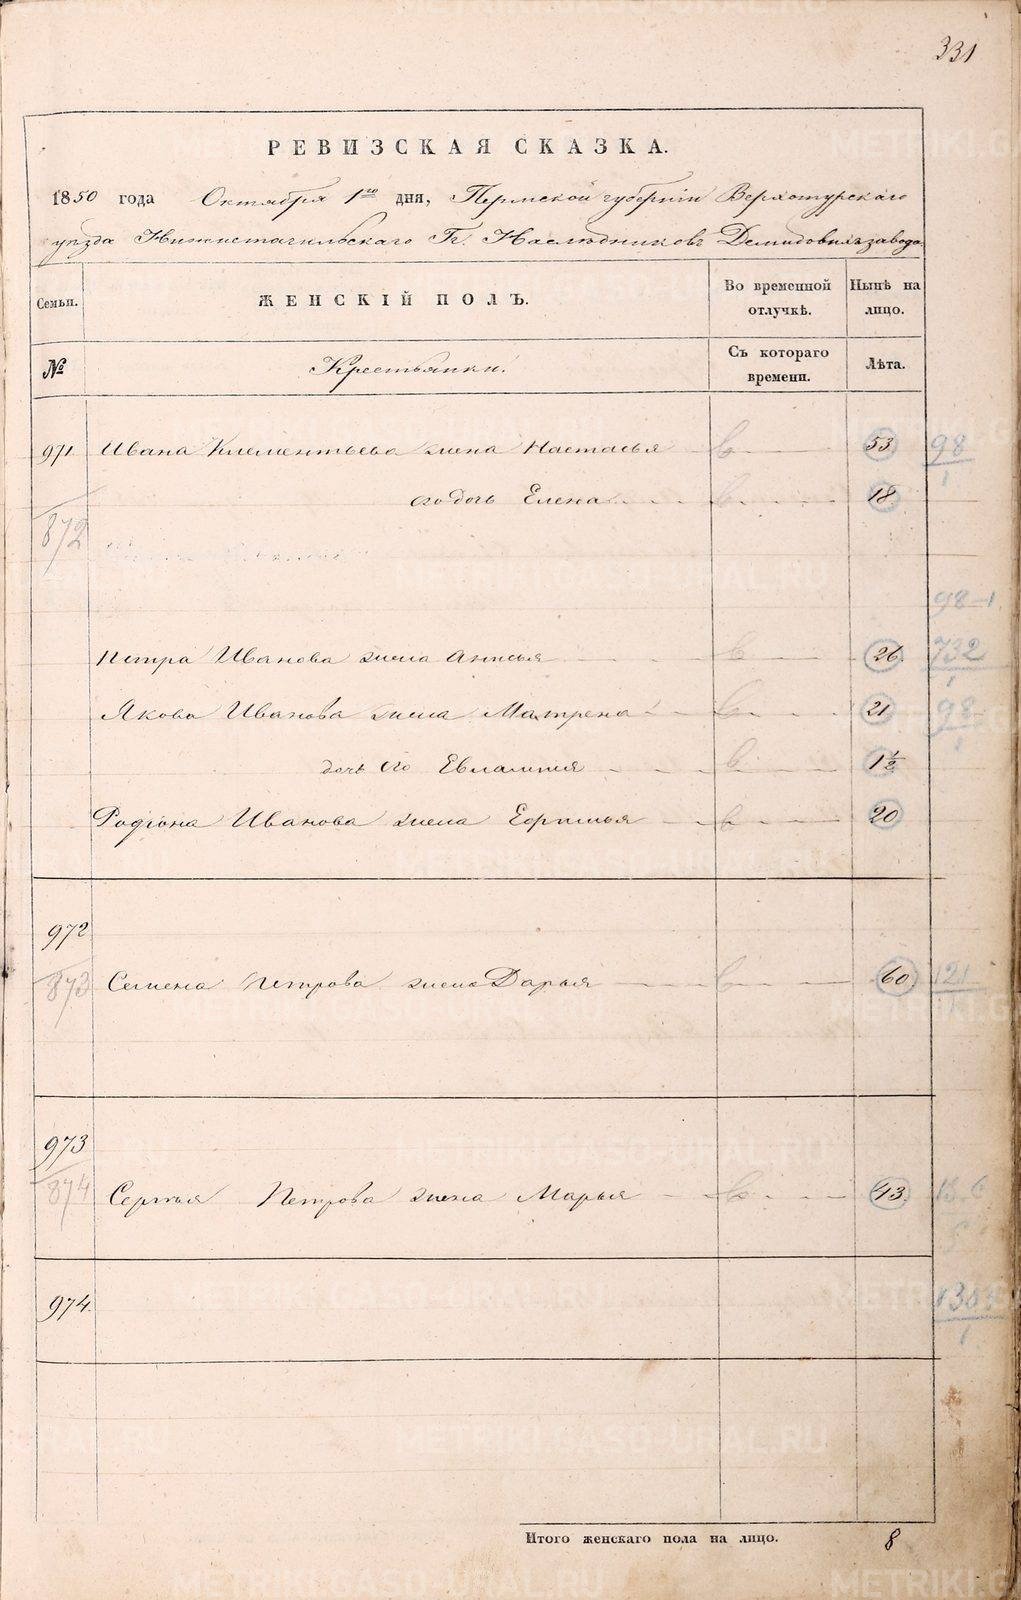 331
РЕВИЗСКАЯ СКАЗКА.
1850 года Октября 1го дня, Пермской губернiи Верхотурскаго
уѣзда Нижнетагильскаго Гг. Наслѣдниковъ Демидовыхъ завода
Семьи. ЖЕНСКIЙ ПОЛЪ. Во временной отлучкѣ. Нынѣ на лицо.
№ Крестьянки. Съ котораго времени. Лѣта.
971 Ивана Клементьева жена Настасья 53 98/1
его дочь Елена 18
872
98-1
Петра Иванова жена Анисья 26 732/1
Якова Иванова жена Матрена 21 98/1
дочь его Евлампия 1½
Родiона Иванова жена 20
972
873 Семена Петрова жена Дарья 60 121
973
874 Сергья Петрова жена Марья 43
974.
Итого женскаго пола на лицо. 8
METRIKI.GASO-URAL.RU